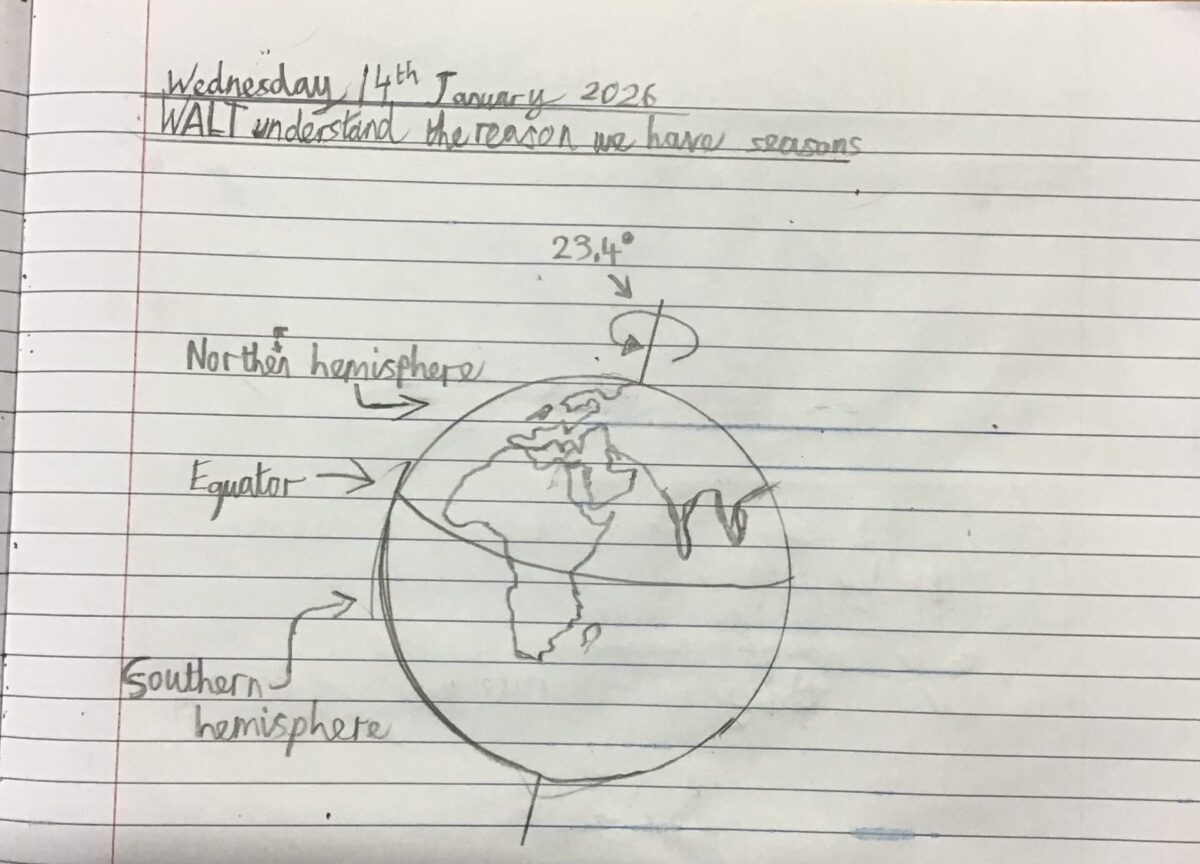 Wednesday 14th January 2026
WALT understand the reason we have seasons
23.4°
Northern hemisphere
Equator
Southern
hemisphere